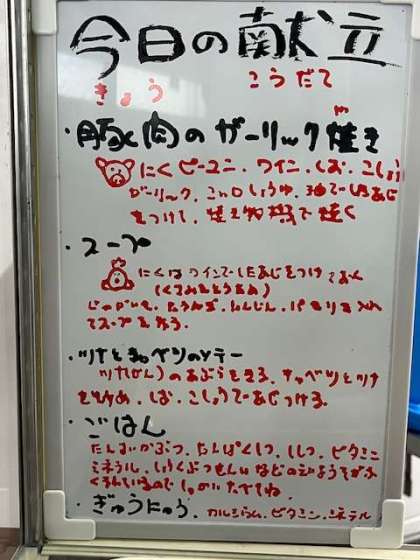 今日の献立
きょう こうだて
・豚肉のガーリック焼き
にく ピーユニ、ワイニ、しお、こしょう
ガーリック、こい口しょうゆ、油でしたあじ
をつけて、焼き物機で焼く
・スープ
にくはワインでしたあじをつけておく
じゃがいも、たまねぎ、にんじん、パセリを入れ
てスープを作る。
・ツナとキャベツのソテー
ツナ(かん)のあぶらをきる。キャベツとツナ
をいため、しお、こしょうであじつける。
・ごはん
たんすいかぶつ、たんぱくしつ、ししつ、ビタミン
ミネラル、しょくぶつせんいなどのえいようそがふ
くまれているのでしっかりたべてね。
・ぎゅうにゅう、カルシウム、ビタミン、ミネラル